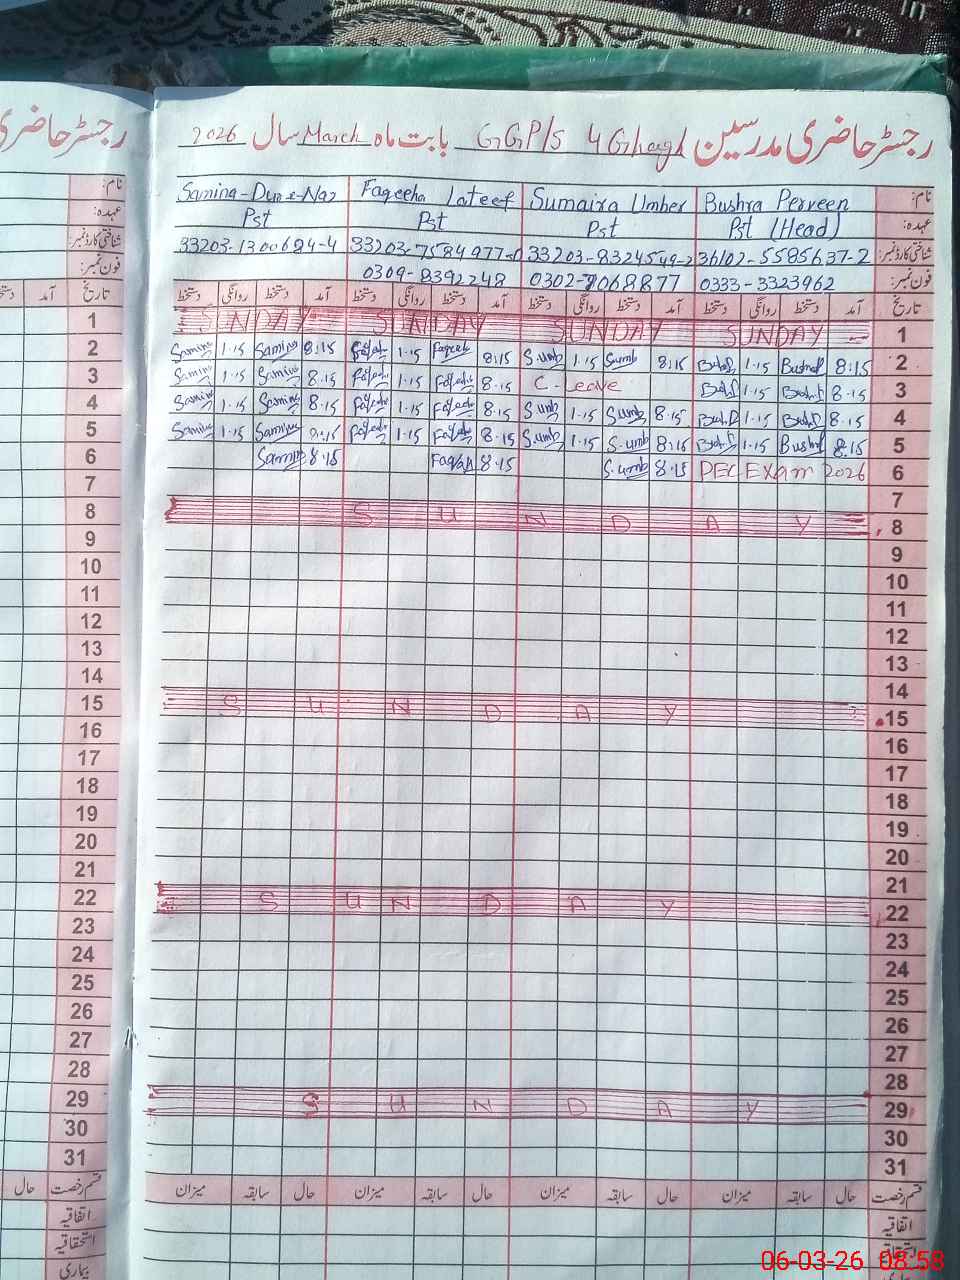 رجسٹر حاضری مدرسین GGP/S 4 Ghagh بابت ماہ March سال 2026
نام: Bushra Perveen Sumaira Umber Faqeeha Lateef
عہدہ: Pst (Head) Pst Pst Pst
شناختی کارڈ نمبر: 36102-5585637-2 33203-8324549-2 33203-7584977-0 33203-1300624-4
فون نمبر: 0333-3323962 0309-8392248
تاریخ آمد دستخط روانگی دستخط آمد دستخط روانگی دستخط آمد دستخط روانگی دستخط آمد دستخط روانگی دستخط تاریخ
1 SUNDAY SUNDAY SUNDAY SUNDAY 1
2 8:15 1-15 8:15 Sumb 1-15 Sumb 8:15 Faqeeh 1-15 8:15 Samina 1-15 Samina 2
3 8-15 1-15 C-Leave 8-15 1-15 8-15 Samina 1-15 Samina 3
4 8-15 1-15 8-15 Sumb 1-15 Sumb 8-15 1-15 8-15 Samina 1-15 Samina 4
5 8:15 1-15 8-15 Sumb 1-15 Sumb 8-15 1-15 8-15 Samina 1-15 Samina 5
6 PEC Exam 2026 8-15 Sumb 8-15 8-15 Samina 6
7 7
8 SUNDAY 8
9 9
10 10
11 11
12 12
13 13
14 14
15 SUNDAY 15
16 16
17 17
18 18
19 19
20 20
21 21
22 SUNDAY 22
23 23
24 24
25 25
26 26
27 27
28 28
29 SUNDAY 29
30 30
31 31
قسم رخصت حال سابقہ میزان حال سابقہ میزان حال سابقہ میزان حال سابقہ میزان قسم رخصت حال
اتفاقیہ اتفاقیہ
استحقاقیہ
بیماری
06-03-26 08:58